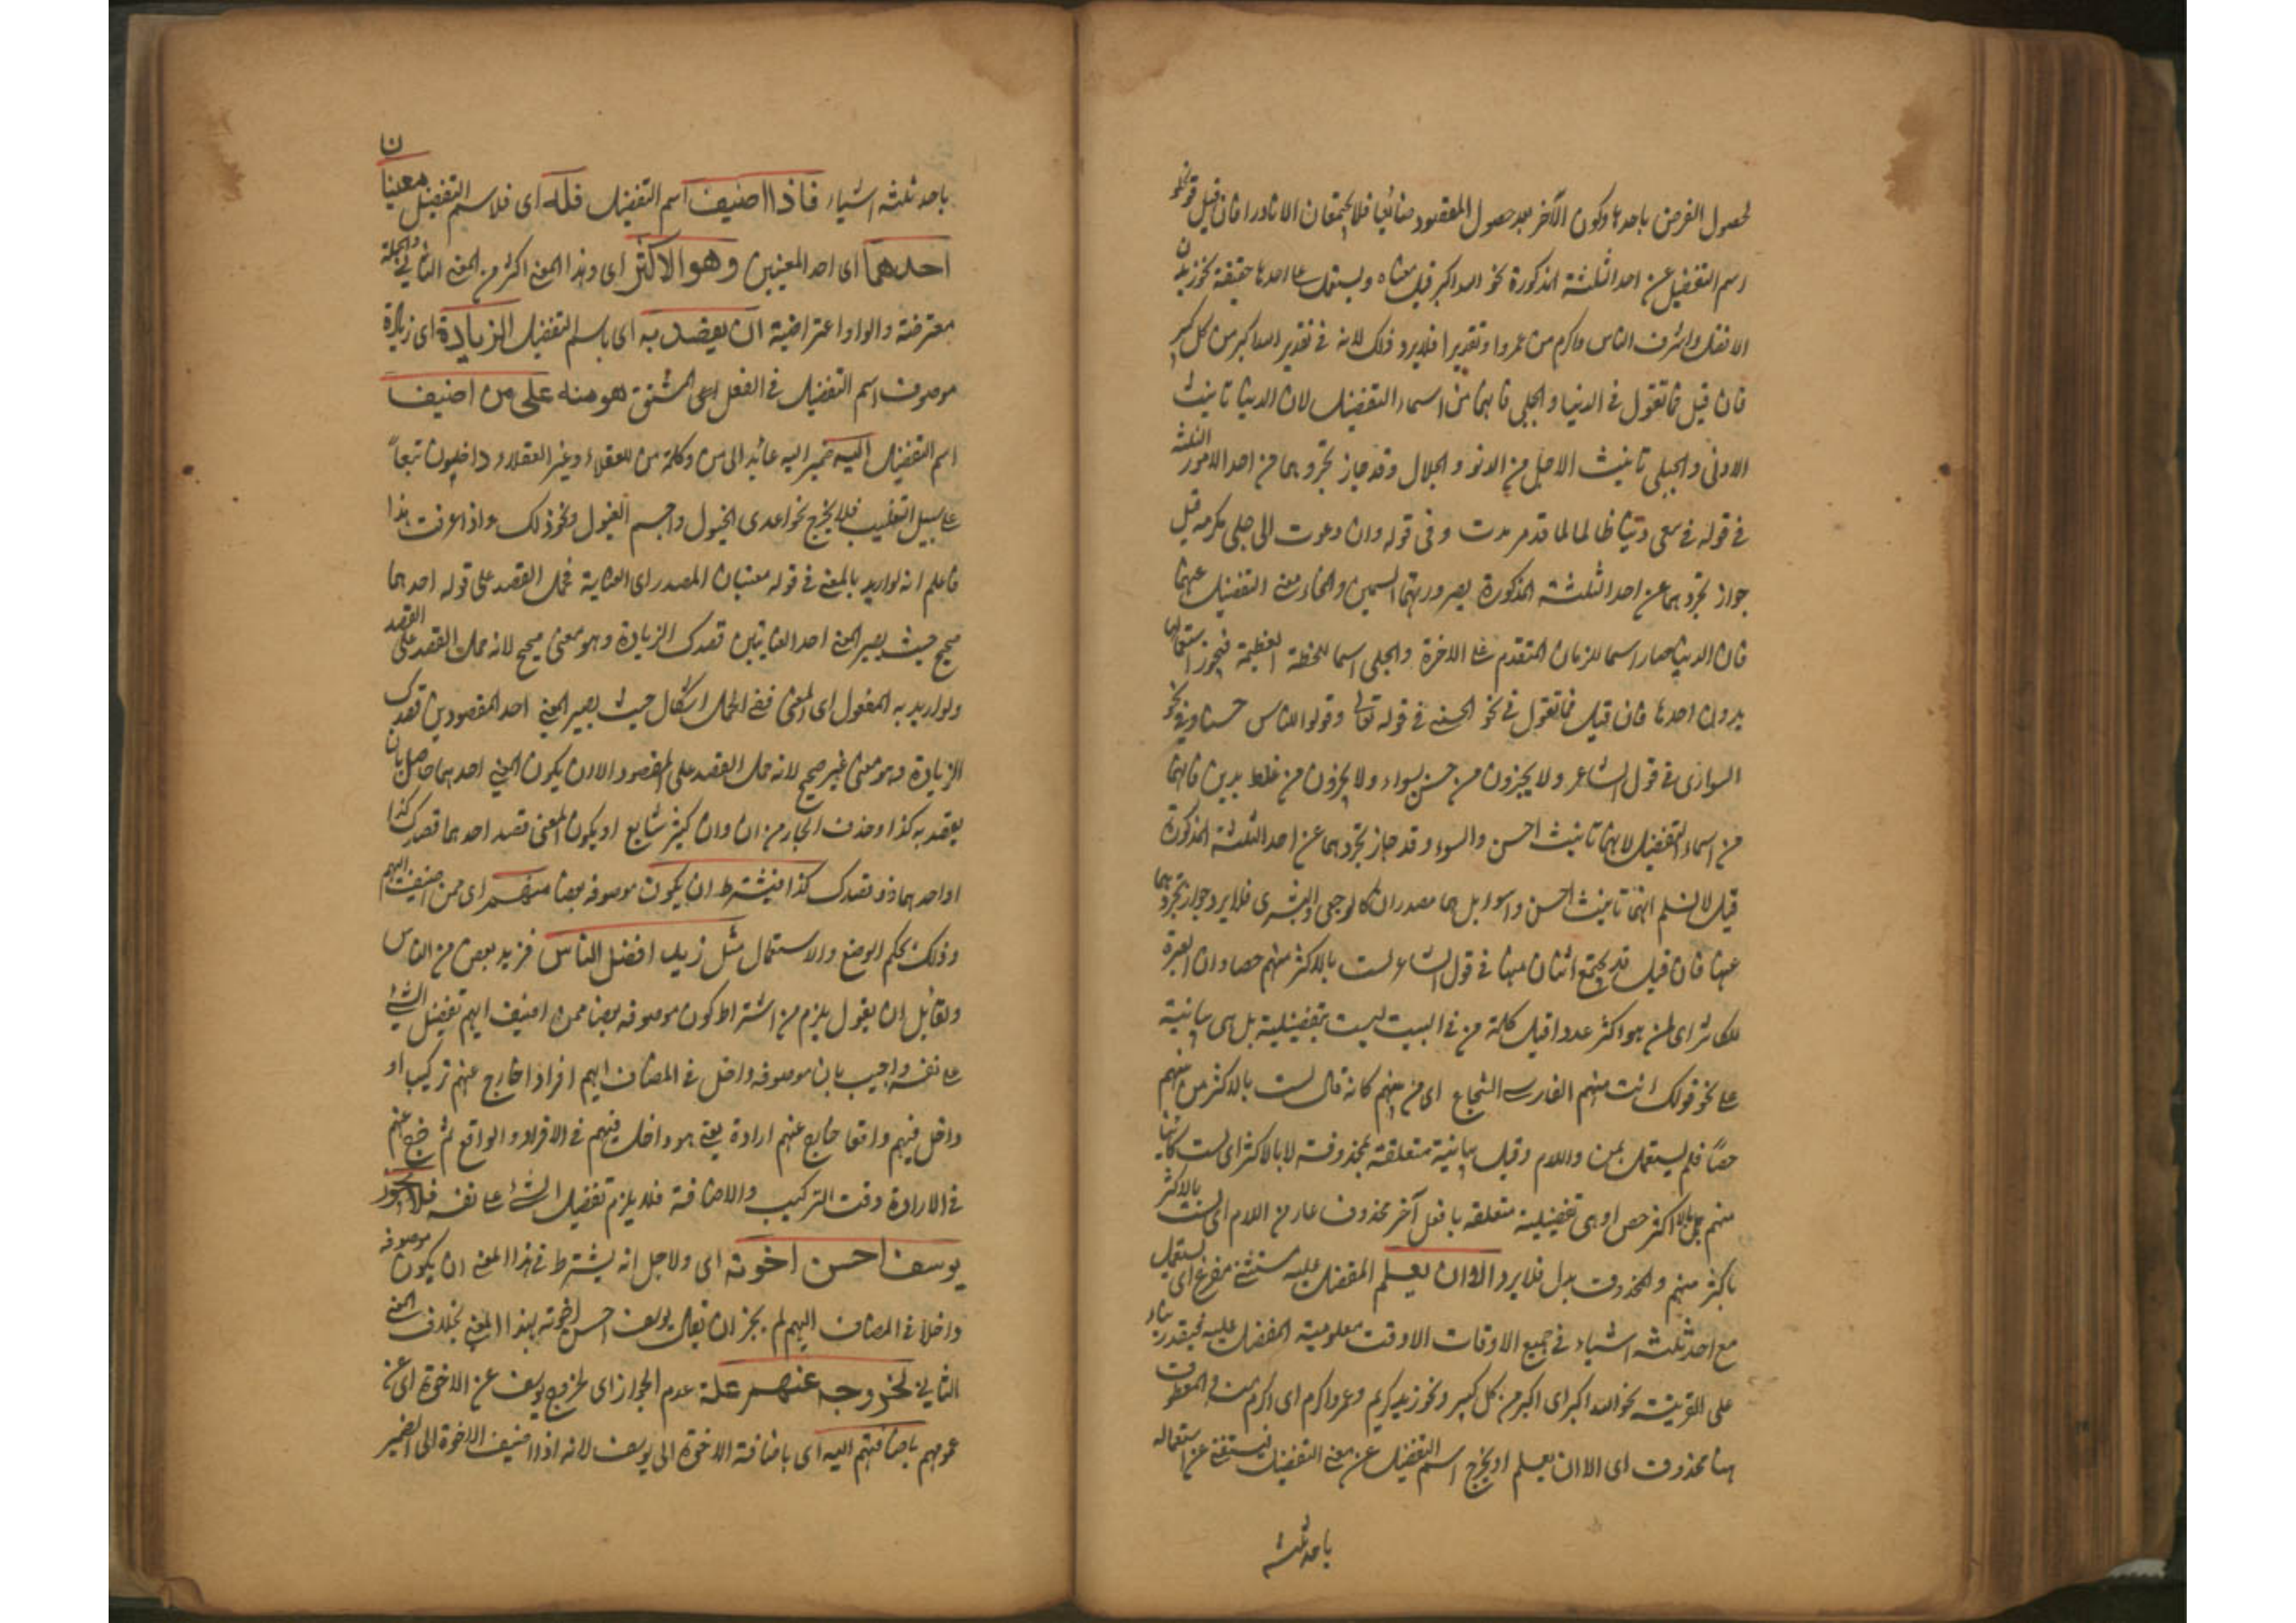 لحصول الغرض باحدها وكون الآخر بعد حصول المقصود ضائعا فلا يجتمعان الا نادرا فان قيل قد يخلو
اسم التفضيل عن احد الثلثة المذكورة نحو الله اكبر قيل معناه ويستعمل على احدها حقيقة نحو زيد
الافضل واشرف الناس واكرم من عمرو او تقديرا فلا يرد ذلك لانه في تقدير الله اكبر من كل كبير
فان قيل فما تقول في الدنيا والجلى فانهما من اسماء التفضيل لان الدنيا تانيث
الادنى والجلى تانيث الاجل من الدنو والجلال وقد جاز تجردهما من احد الامور الثلثة
في قوله في سعى دنيا طالما قد مدت وفي قوله وان دعوت الى جلى ومكرمة قيل
جواز تجردهما عن احد الثلثة المذكورة لصيرورتهما اسمين وانمحاء معنى التفضيل عنهما
فان الدنيا صار اسما للزمان المتقدم على الاخرة والجلى اسما للخطة العظيمة فيجوز استعمالها
بدون احدها فان قيل فما تقول في نحو الحسنى في قوله تعالى وقولوا للناس حسنا وفي نحو
السوأى في قول الشاعر ولا يجزون من حسن بسوء ولا يجزون من غلظ بلين فانهما
من اسماء التفضيل لانهما تانيث احسن والسوء وقد جاز تجردهما عن احد الثلثة المذكورة
قيل لا نسلم انهما تانيث احسن واسوء بل هما مصدران كالرجعى والبشرى فلا يرد جواز تجردهما
عنها فان قيل قد يجتمع اثنان منها في قول الشاعر لست بالاكثر منهم حصا وان العزة
للكاثر اى لمن هو اكثر عددا قيل كلمة من في البيت ليست بتفضيلية بل هى بيانية
على نحو قولك انت منهم الفارس الشجاع اى من بينهم كانه قال لست بالاكثر من بينهم
حصا فلم يستعمل بمن واللام وقيل بيانية متعلقة بمحذوفة لا بالاكثر اى لست كائنا
منهم بالاكثر حصى او هى تفضيلية متعلقة بافعل آخر محذوف عار من اللام اى لست بالاكثر
باكثر منهم والمحذوف بدل فلا يرد الا ان يعلم المفضل عليه مستثنى مفرغ اى يستعمل
مع احد ثلثة اشياء في جميع الاوقات الا وقت معلومية المفضل عليه فيقدر بناء
على القرينة نحو الله اكبر اى اكبر من كل كبير ونحو زيد كريم وعمرو اكرم اى اكرم منه والمعطوف
ههنا محذوف اى الا ان يعلم او يخرج اسم التفضيل عن معنى التفضيل فيستغنى عن استعماله
باحد ثلثة
باحد ثلثة اشياء فاذا اضيف اسم التفضيل فله اى فلاسم التفضيل معنيان
احدهما اى احد المعنيين وهو الاكثر اى وهذا المعنى اكثر من المعنى الثاني والجملة
معترضة والواو اعتراضية ان يقصد به اى باسم التفضيل الزيادة اى زيادة
موصوف اسم التفضيل في الفعل اى المشتق هو منه على من اضيف
اسم التفضيل اليه ضمير اليه عائد الى من وكلمة من للعقلاء وغير العقلاء داخلون تبعا
على سبيل التغليب فلا يخرج نحو اعدى الخيول واجسم الفيول ونحو ذلك واذا عرفت هذا
فاعلم انه لو اريد بالمعنى في قوله معنيان المصدر اى العناية فحمل القصد على قوله احدهما
صحيح حيث يصير المعنى احد العنايتين قصدك الزيادة وهو معنى صحيح لانه حمل القصد على القصد
ولو اريد به المفعول اى المعنى ففي الحمل اشكال حيث يصير المعنى احد المقصودين قصدك
الزيادة وهو معنى غير صحيح لانه حمل القصد على المقصود الا ان يكون المعنى احدهما حاصل بان
يقصد به كذا وحذف الجار من ان وان كثير شايع او يكون المعنى قصد احدهما قصدك كذا
او احدهما ذو قصدك كذا فيشترط ان يكون موصوفه بعضا منهم اى ممن اضيف اليهم
وذلك بحكم الوضع والاستعمال مثل زيد افضل الناس فزيد بعض من الناس
ولقائل ان يقول يلزم من اشتراط كون موصوفه بعضا ممن اضيف اليهم تفضيل الشئ
على نفسه واجيب بان موصوفه داخل في المضاف اليهم افرادا خارج عنهم تركيبا او
داخل فيهم واقعا خارج عنهم ارادة يعنى هو داخل فيهم في الافراد والواقع ثم خرج عنهم
في الارادة وقت التركيب والاضافة فلا يلزم تفضيل الشئ على نفسه فلا يجوز
يوسف احسن اخوته اى ولاجل انه يشترط في هذا المعنى ان يكون موصوفه
داخلا في المضاف اليهم لم يجز ان يقال يوسف احسن اخوته بهذا المعنى بخلاف المعنى
الثاني لخروجه عنهم علة عدم الجواز اى لخروج يوسف عن الاخوة اى عن
عمومهم باضافتهم اليه اى باضافة الاخوة الى يوسف لانه اذا اضيف الاخوة الى الضمير